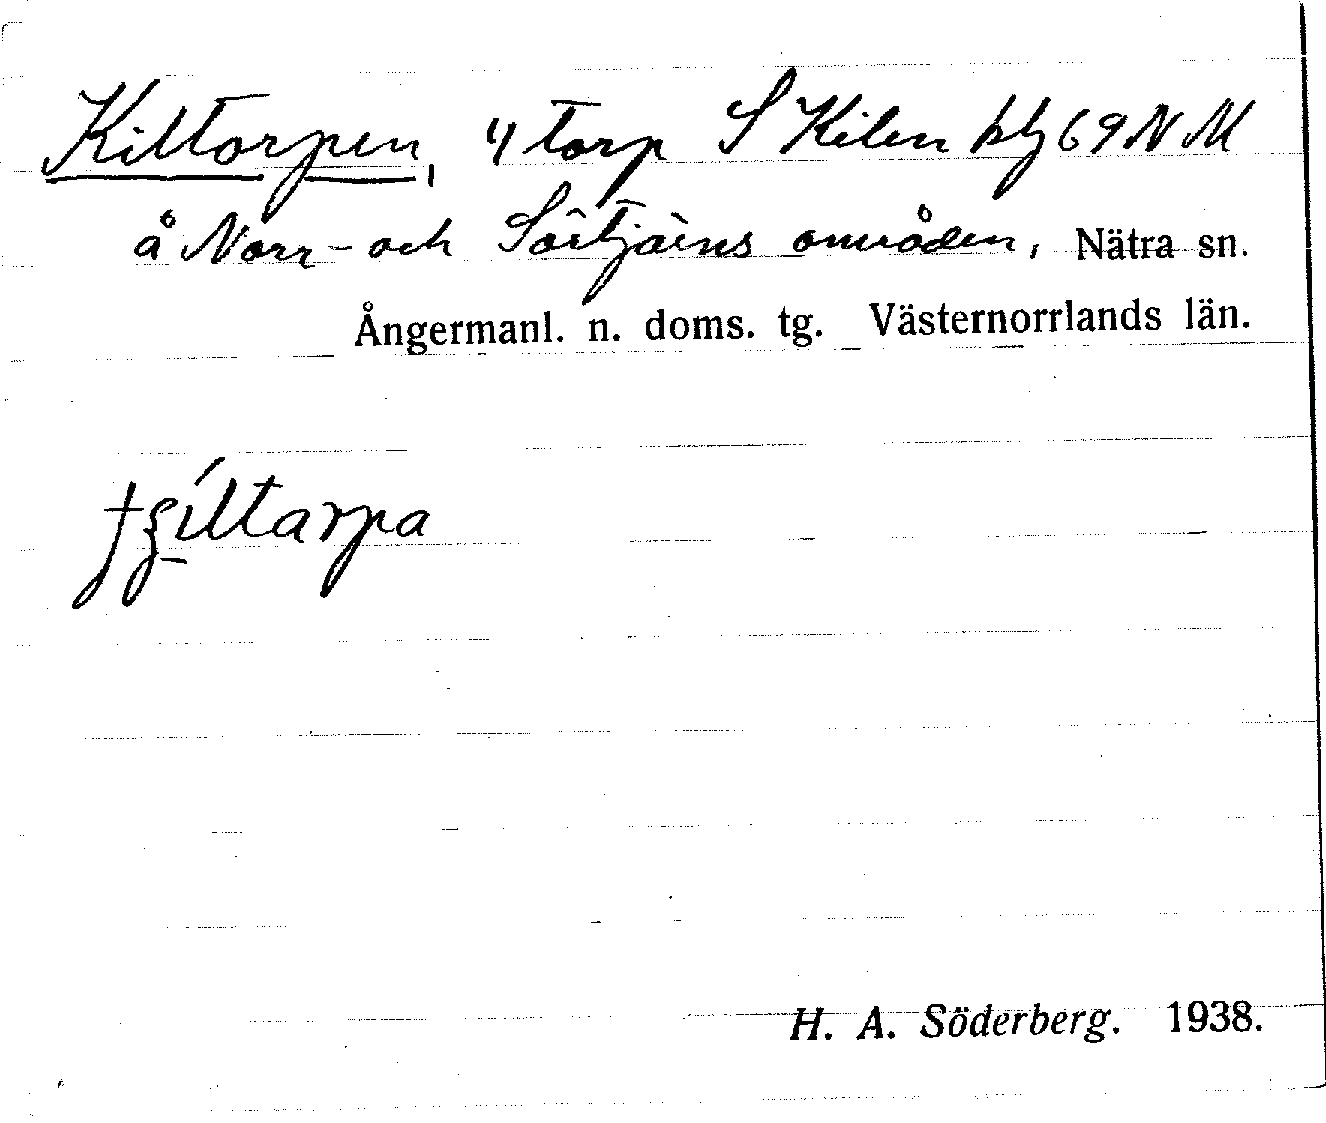 Kiltorpen, 4 torp S Kilen btj 69 N M
å Norr- och Sörtjärns områden, Nätra sn.
Ångermanl. n. doms. tg. Västernorrlands län.
H. A. Söderberg. 1938.